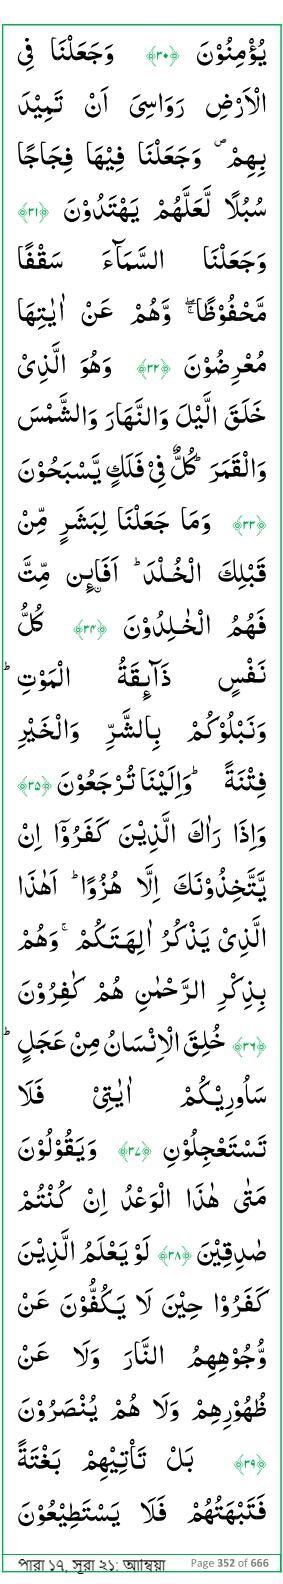 يُؤْمِنُوْنَ ﴿۳۰﴾ وَجَعَلْنَا فِی
الْاَرْضِ رَوَاسِیَ اَنْ تَمِیْدَ
بِهِمْ ۪ وَجَعَلْنَا فِیْهَا فِجَاجًا
سُبُلًا لَّعَلَّهُمْ یَهْتَدُوْنَ ﴿۳۱﴾
وَجَعَلْنَا السَّمَآءَ سَقْفًا
مَّحْفُوْظًا ۚۖ وَّهُمْ عَنْ اٰیٰتِهَا
مُعْرِضُوْنَ ﴿۳۲﴾ وَهُوَ الَّذِیْ
خَلَقَ الَّیْلَ وَالنَّهَارَ وَالشَّمْسَ
وَالْقَمَرَ ؕ کُلٌّ فِیْ فَلَكٍ یَّسْبَحُوْنَ
﴿۳۳﴾ وَمَا جَعَلْنَا لِبَشَرٍ مِّنْ
قَبْلِكَ الْخُلْدَ ؕ اَفَا۠ئِنْ مِّتَّ
فَهُمُ الْخٰلِدُوْنَ ﴿۳۴﴾ کُلُّ
نَفْسٍ ذَآئِقَةُ الْمَوْتِ ؕ
وَنَبْلُوْکُمْ بِالشَّرِّ وَالْخَیْرِ
فِتْنَةً ؕ وَاِلَیْنَا تُرْجَعُوْنَ ﴿۳۵﴾
وَاِذَا رَاٰكَ الَّذِیْنَ کَفَرُوْۤا اِنْ
یَّتَّخِذُوْنَكَ اِلَّا هُزُوًا ؕ اَهٰذَا
الَّذِیْ یَذْکُرُ اٰلِهَتَکُمْ ۚ وَهُمْ
بِذِکْرِ الرَّحْمٰنِ هُمْ کٰفِرُوْنَ
﴿۳۶﴾ خُلِقَ الْاِنْسَانُ مِنْ عَجَلٍ ؕ
سَاُورِیْکُمْ اٰیٰتِیْ فَلَا
تَسْتَعْجِلُوْنِ ﴿۳۷﴾ وَیَقُوْلُوْنَ
مَتٰی هٰذَا الْوَعْدُ اِنْ کُنْتُمْ
صٰدِقِیْنَ ﴿۳۸﴾ لَوْ یَعْلَمُ الَّذِیْنَ
کَفَرُوْا حِیْنَ لَا یَکُفُّوْنَ عَنْ
وُّجُوْهِهِمُ النَّارَ وَلَا عَنْ
ظُهُوْرِهِمْ وَلَا هُمْ یُنْصَرُوْنَ
﴿۳۹﴾ بَلْ تَاْتِیْهِمْ بَغْتَةً
فَتَبْهَتُهُمْ فَلَا یَسْتَطِیْعُوْنَ
পারা ১৭, সূরা ২১: আম্বিয়া Page 352 of 666